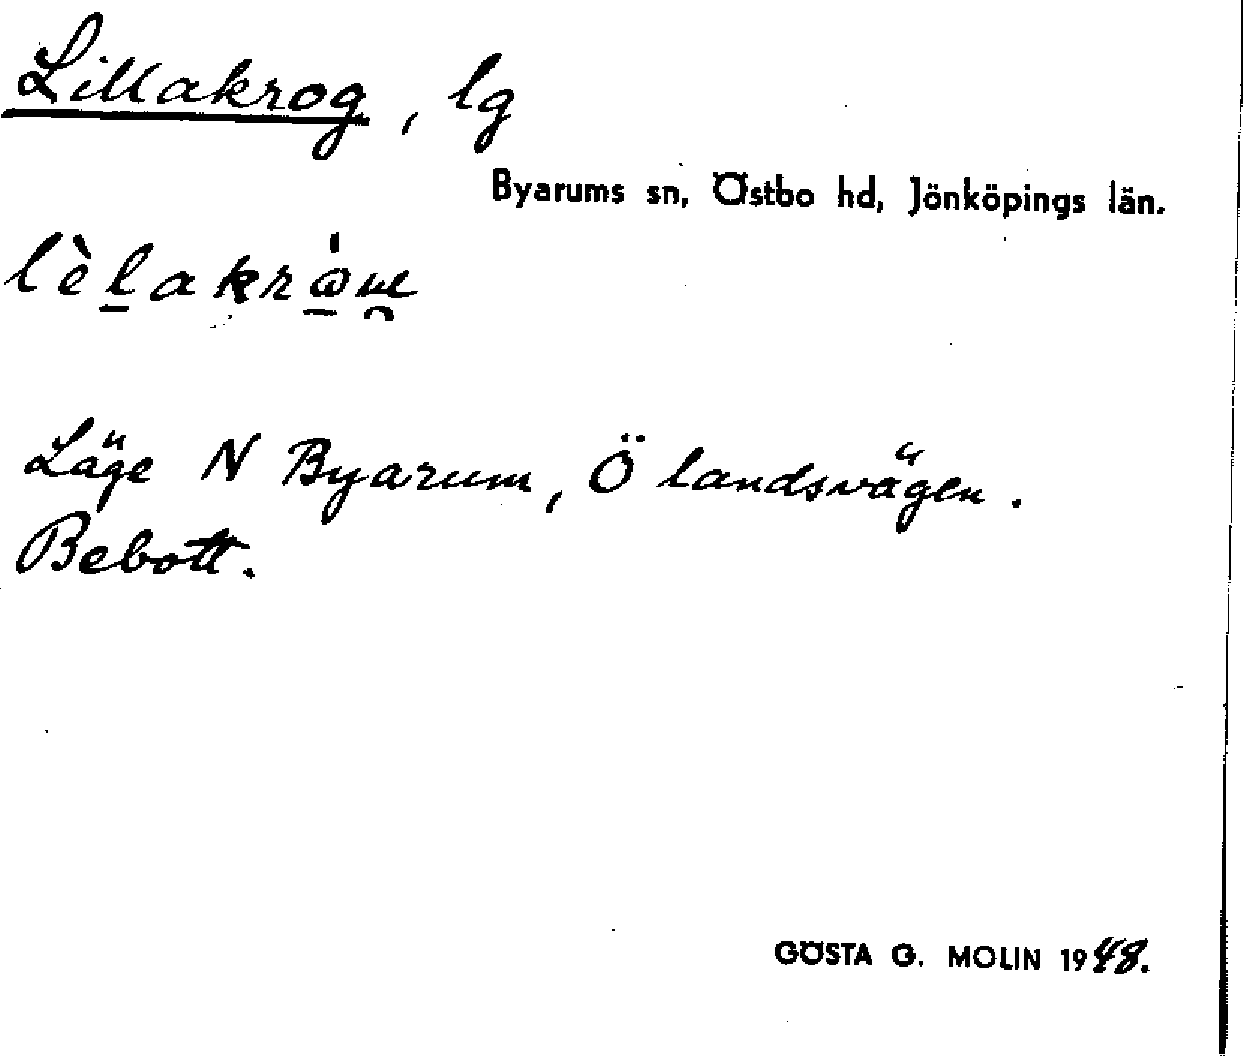 Lillakrog, lg
Byarums sn, Östbo hd, Jönköpings län.
Läge N Byarum, Ö landsvägen.
Bebott.
GÖSTA G. MOLIN 1948.